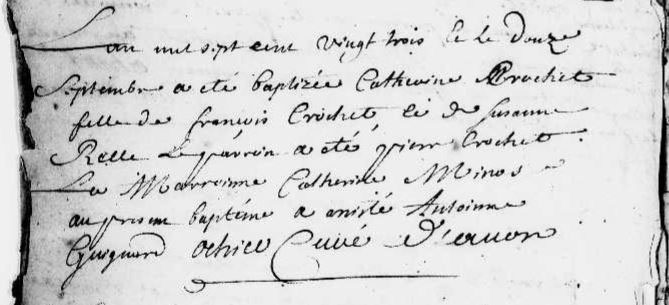 Lan mil sept cent vingt trois le le douze
Septembre a eté baptizée Catherine Crochet
fille de françois Crochet, et de Susanne
Relle Le parrein a eté pierre Crochet
La Marroinne Catherine Minos
au presen baptéme a asisté Antoinne
Guignard Curé D'